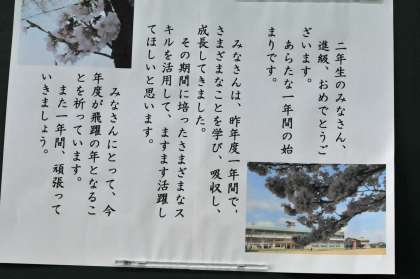 二年生のみなさん、
進級、おめでとうご
ざいます。
あらたな一年間の始
まりです。
みなさんは、昨年度一年間で、
さまざまなことを学び、吸収し、
成長してきました。
その期間に培ったさまざまなス
キルを活用して、ますます活躍し
てほしいと思います。
みなさんにとって、今
年度が飛躍の年となるこ
とを祈っています。
また一年間、頑張って
いきましょう。